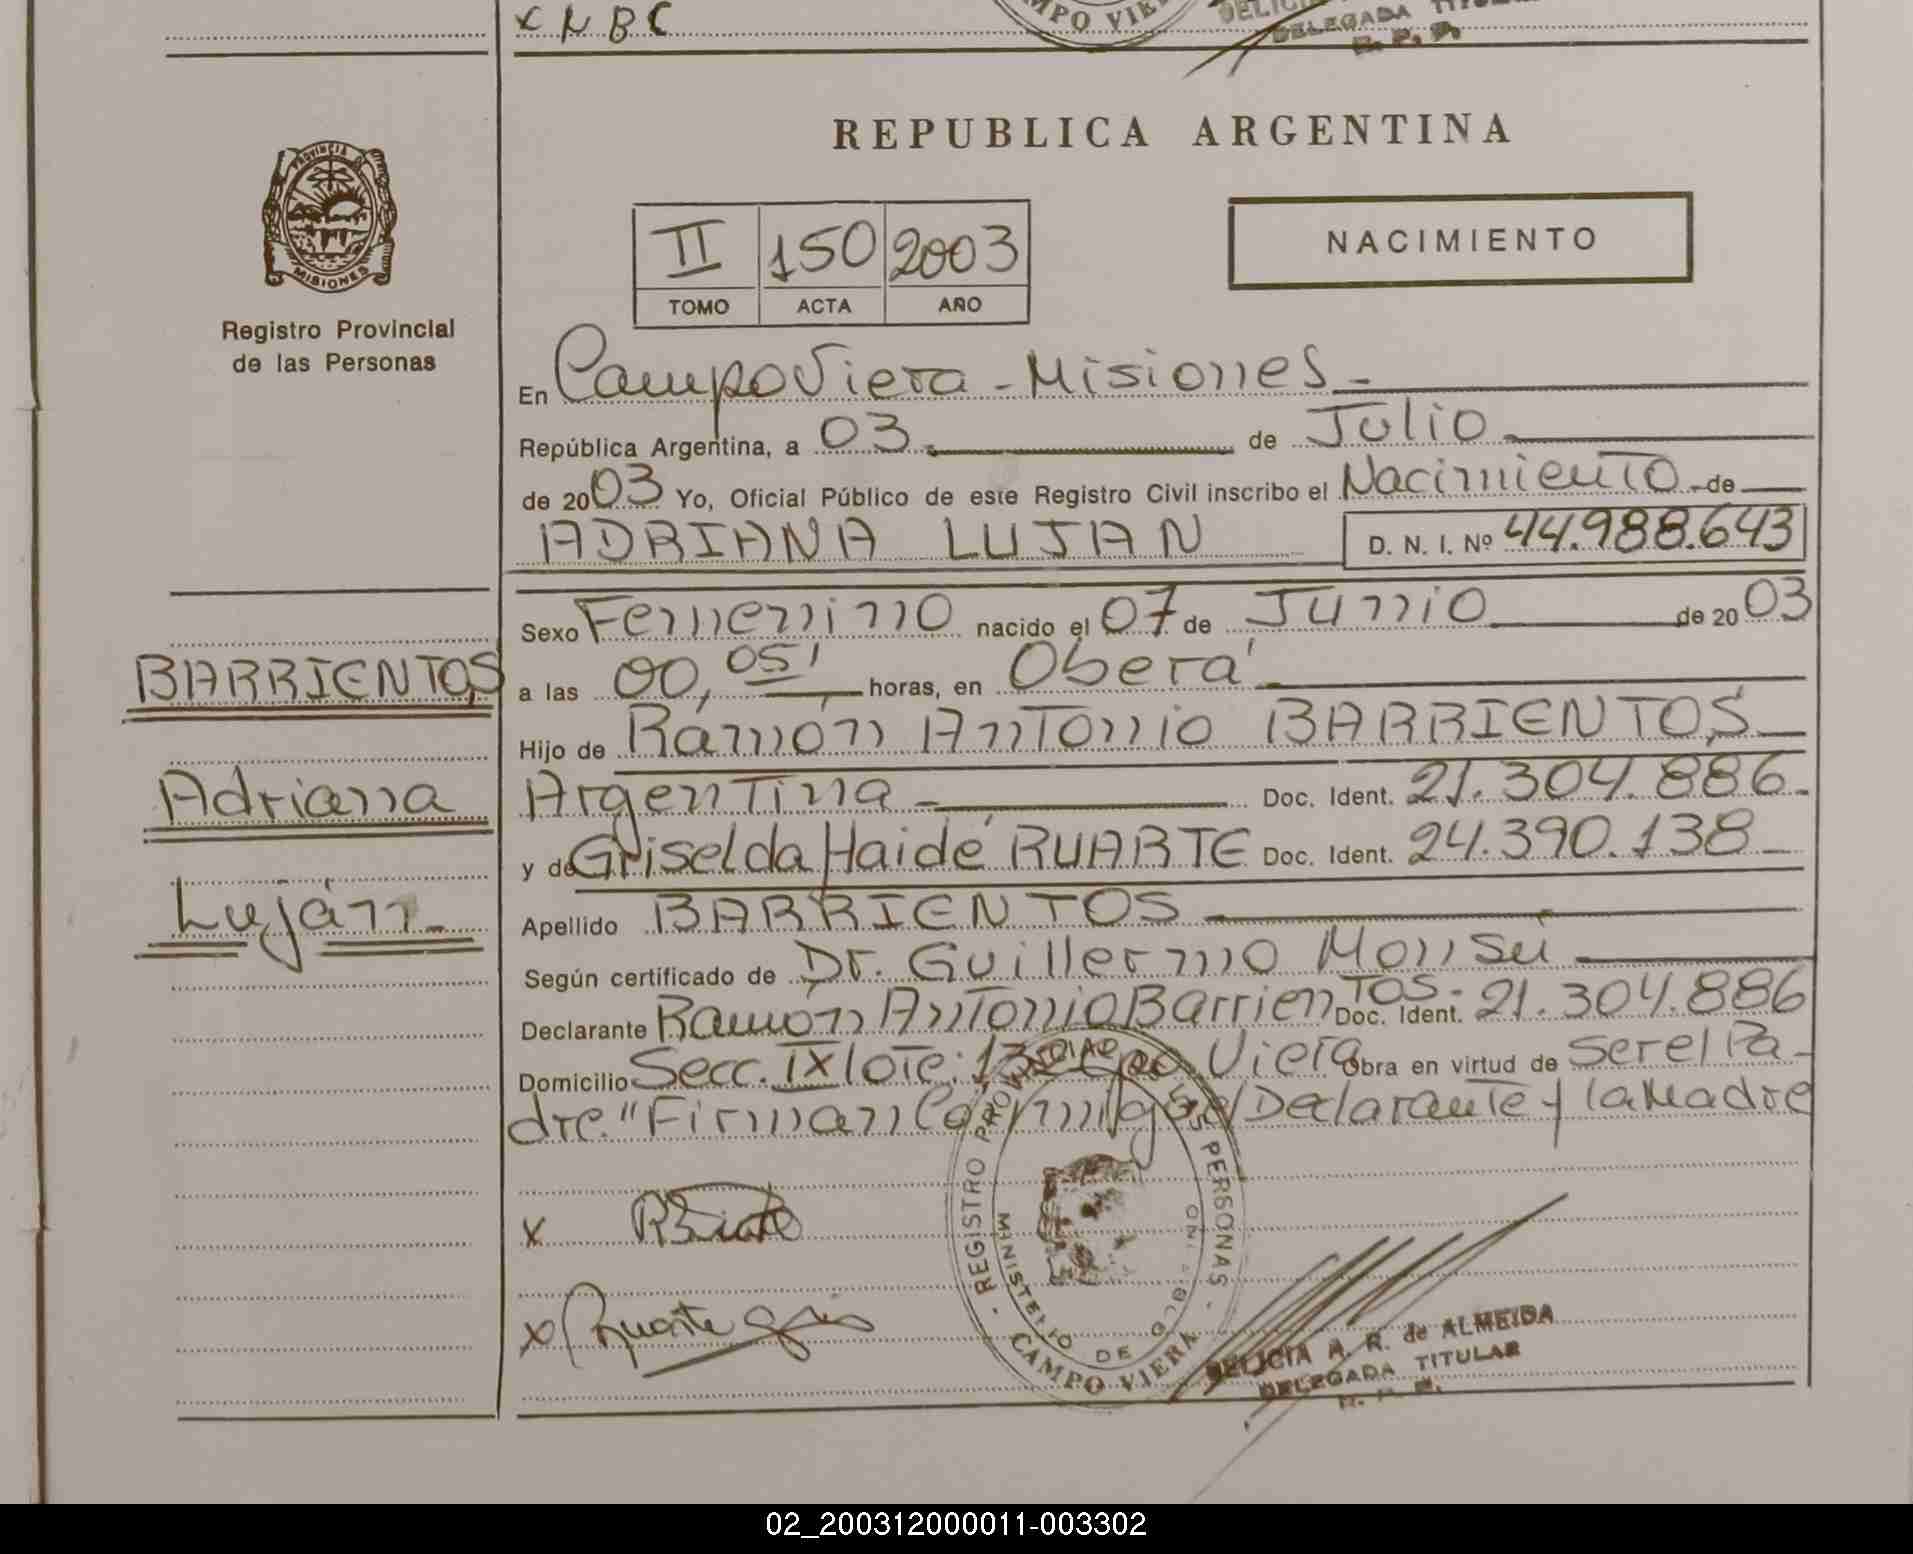 x N B C
CAMPO VIE
DELEGADA TITU
R. P. P.
PROVINCIA
MISIONES
Registro Provincial
de las Personas
REPUBLICA ARGENTINA
NACIMIENTO
II 150 2003
TOMO ACTA AÑO
En Campo Viera - Misiones -
República Argentina, a 03 de Julio
de 2003 Yo, Oficial Público de este Registro Civil inscribo el Nacimiento de
ADRIANA LUJAN D. N. I. Nº 44.988.643
Sexo Femenino nacido el 07 de Junio de 2003
a las 00,05' horas, en Oberá
Hijo de Ramón Antonio BARRIENTOS
Argentina - Doc. Ident. 21.304.886
y de Griselda Haidé RUARTE Doc. Ident. 24.390.138
Apellido BARRIENTOS
Según certificado de Dr. Guillermo
Declarante Ramón Antonio Barrientos - Doc. Ident. 21.304.886
Domicilio Secc. IX lote: 13 Cpo Viera obra en virtud de ser el Pa-
dre." Firman Conmigo el Declarante y la Madre
BARRIENTOS,
Adriana
Luján
x
x Ruarte
REGISTRO PROVINCIAL DE LAS PERSONAS
MINISTERIO DE GOBIERNO
CAMPO VIERA
DELICIA A. R. de ALMEIDA
DELEGADA TITULAR
R. P. P.
02_200312000011-003302